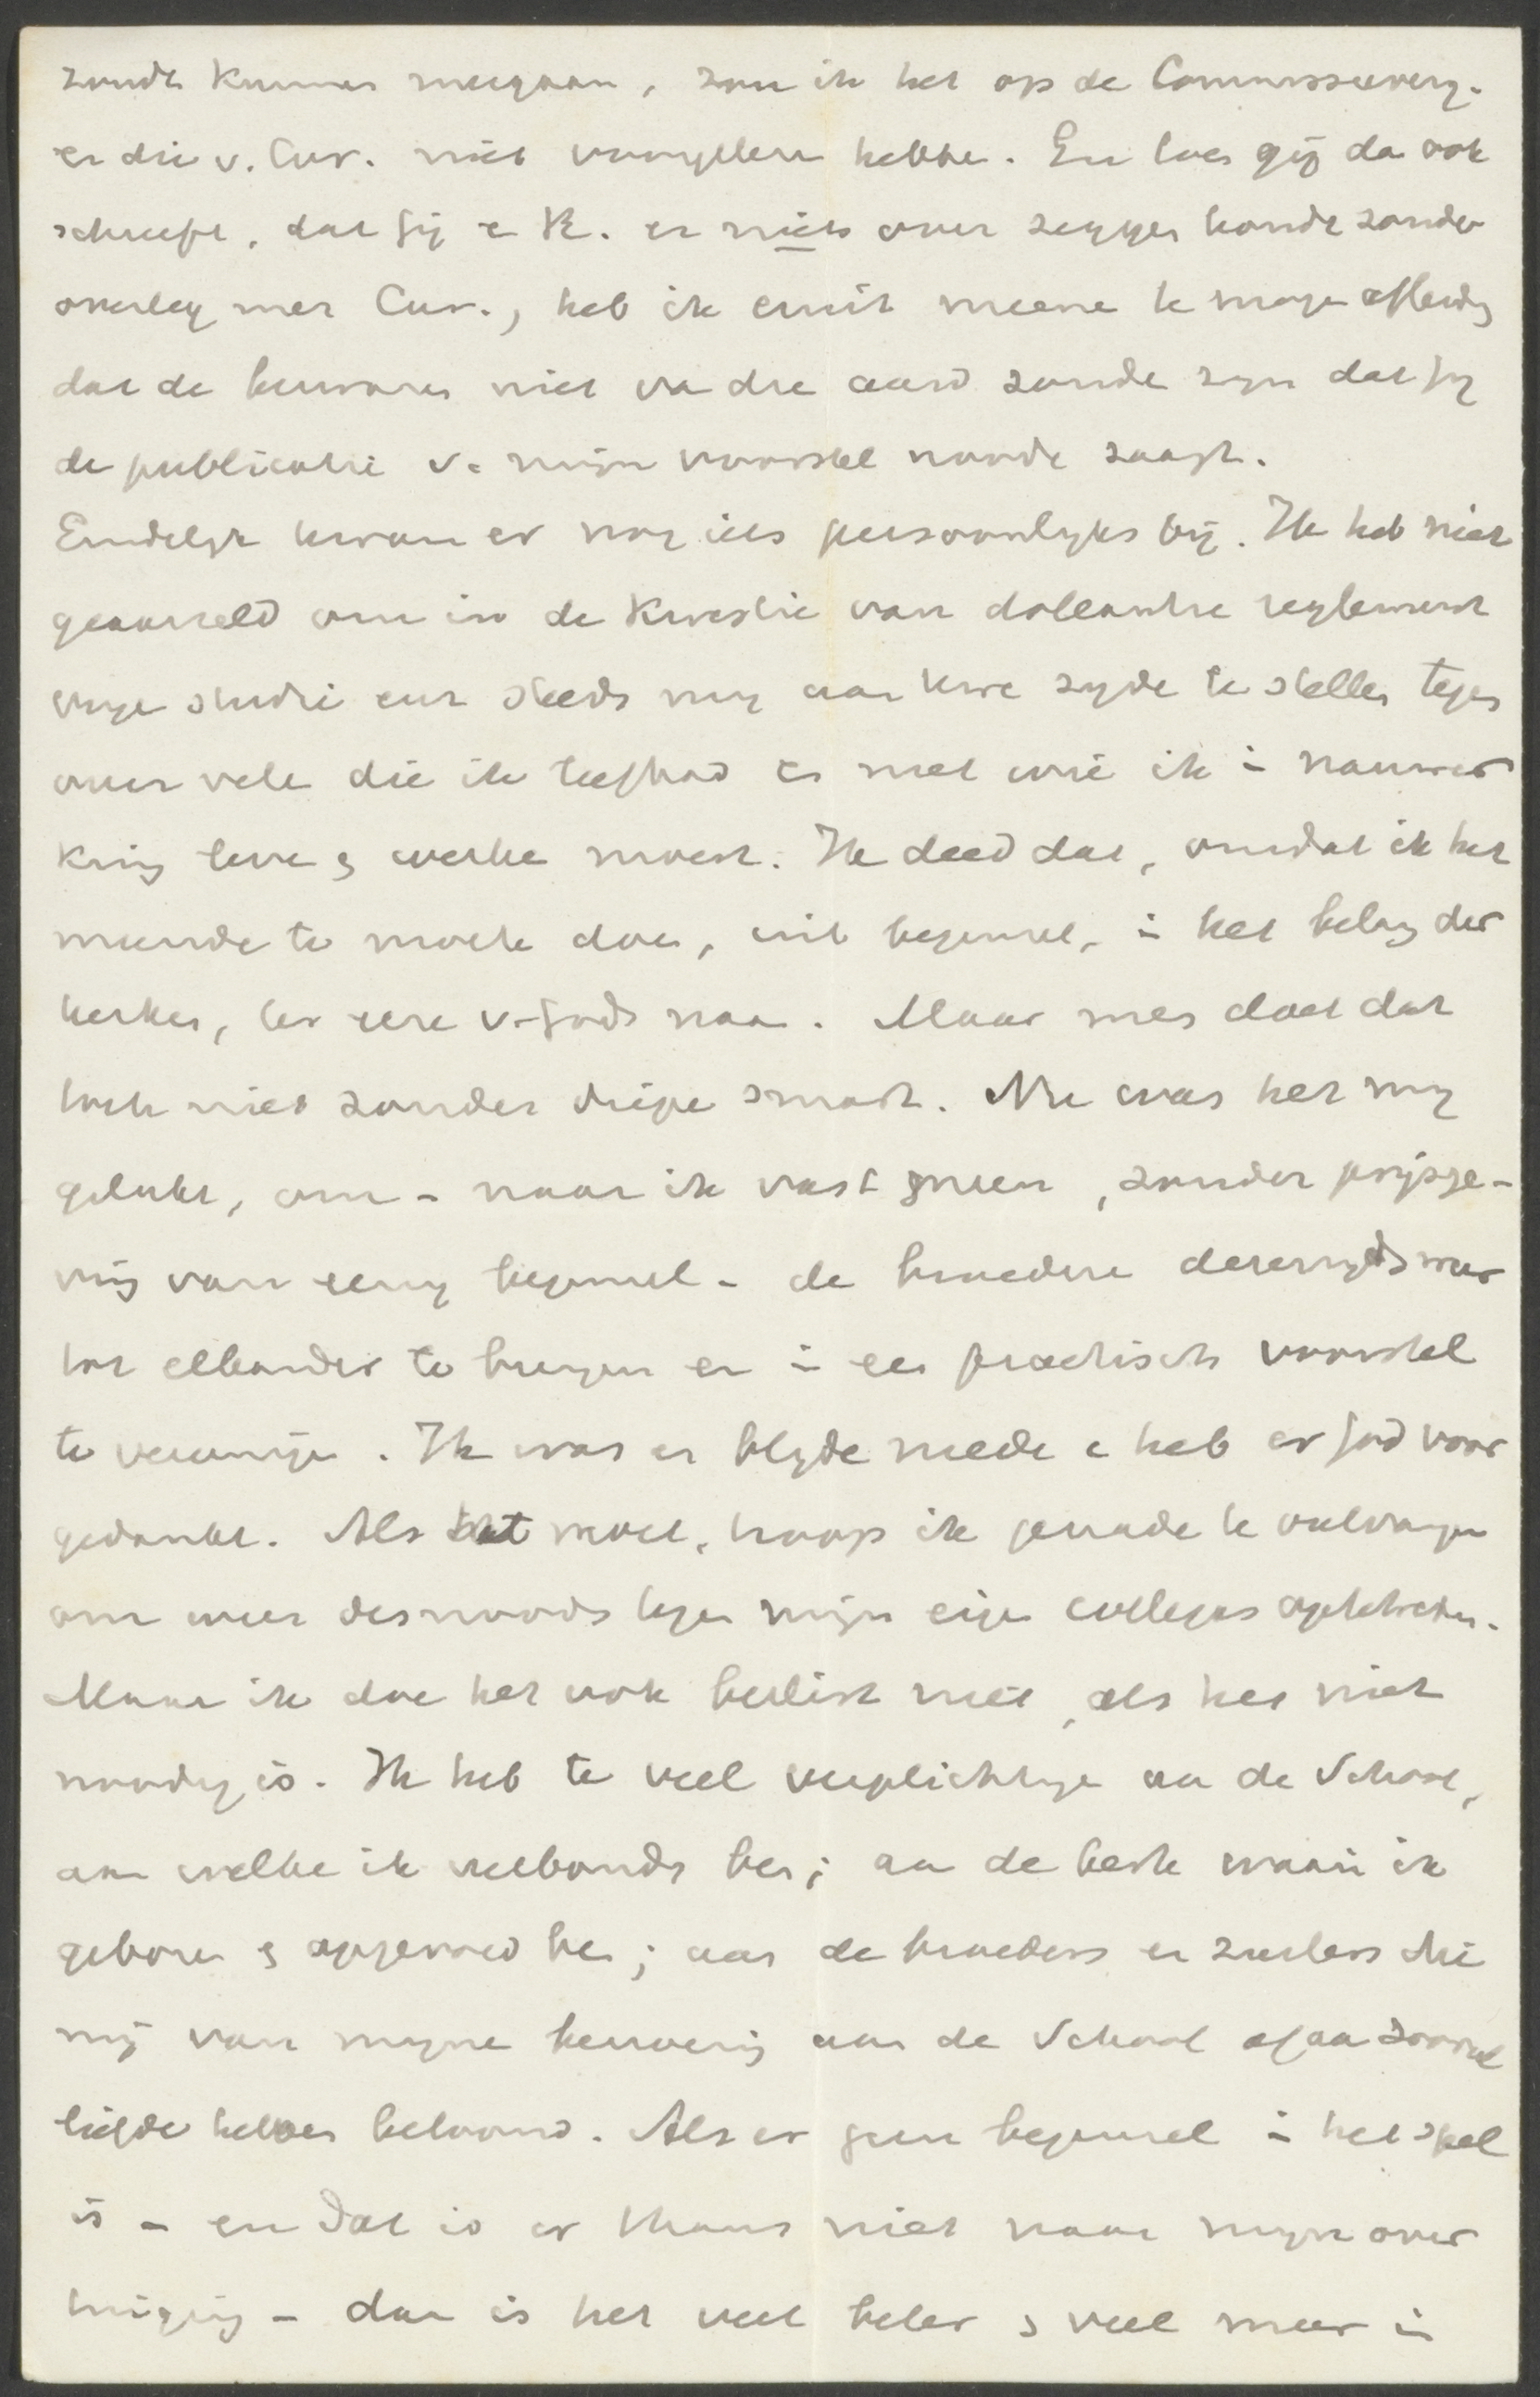 zoudt kunnen meegaan, zou ik het op de Commissieverg.
en die v. Cur. niet voorgelezen hebben. En toen gij dan ook
schreeft, dat gij e K. er niets over zeggen kondt zonder
overleg met Cur., heb ik eruit meenen te mogen afleiden
dat de bezwaren niet van die aard zouden zijn dat gij
de publicatie v. mijn voorstel noode zaagt.
Eindelijk kwam er nog iets persoonlijks bij. Ik heb niet
geaarzeld om in de kwestie van doleantie reglement
vrije studie enz steeds mij aan uwe zijde te stellen tegen
over velen die ik liefhad en met wie ik in nauwer
kring leven & werken moest. Ik deed dat, omdat ik het
meende te moeten doen, uit beginsel, in het belang der
kerken, ter eere v. Gods naam. Maar men doet dat
toch niet zonder diepe smart. Nu was het mij
gelukt, om - naar ik vast meen, zonder prijsge-
ving van eenig beginsel - de broederen dezerzijds weer
tot elkander te brengen en in een practisch voorstel
te vereenigen. Ik was er blijde mede e heb er God voor
gedankt. Als het moet, hoop ik genade te ontvangen
om weer desnoods tegen mijn eigen collegas optetreden.
Maar ik doe het ook beslist niet, als het niet
noodig is. Ik heb te veel verplichtingen aan de School,
aan welke ik verbonden ben; aan de kerk waarin ik
geboren & opgevoed ben; aan de broeders en zusters die
mij van mijne benoeming aan de School af aan zooveel
liefde hebben betoond. Als er geen beginsel in het spel
is - en dat is er thans niet naar mijn over
tuiging - dan is het veel beter & veel meer in